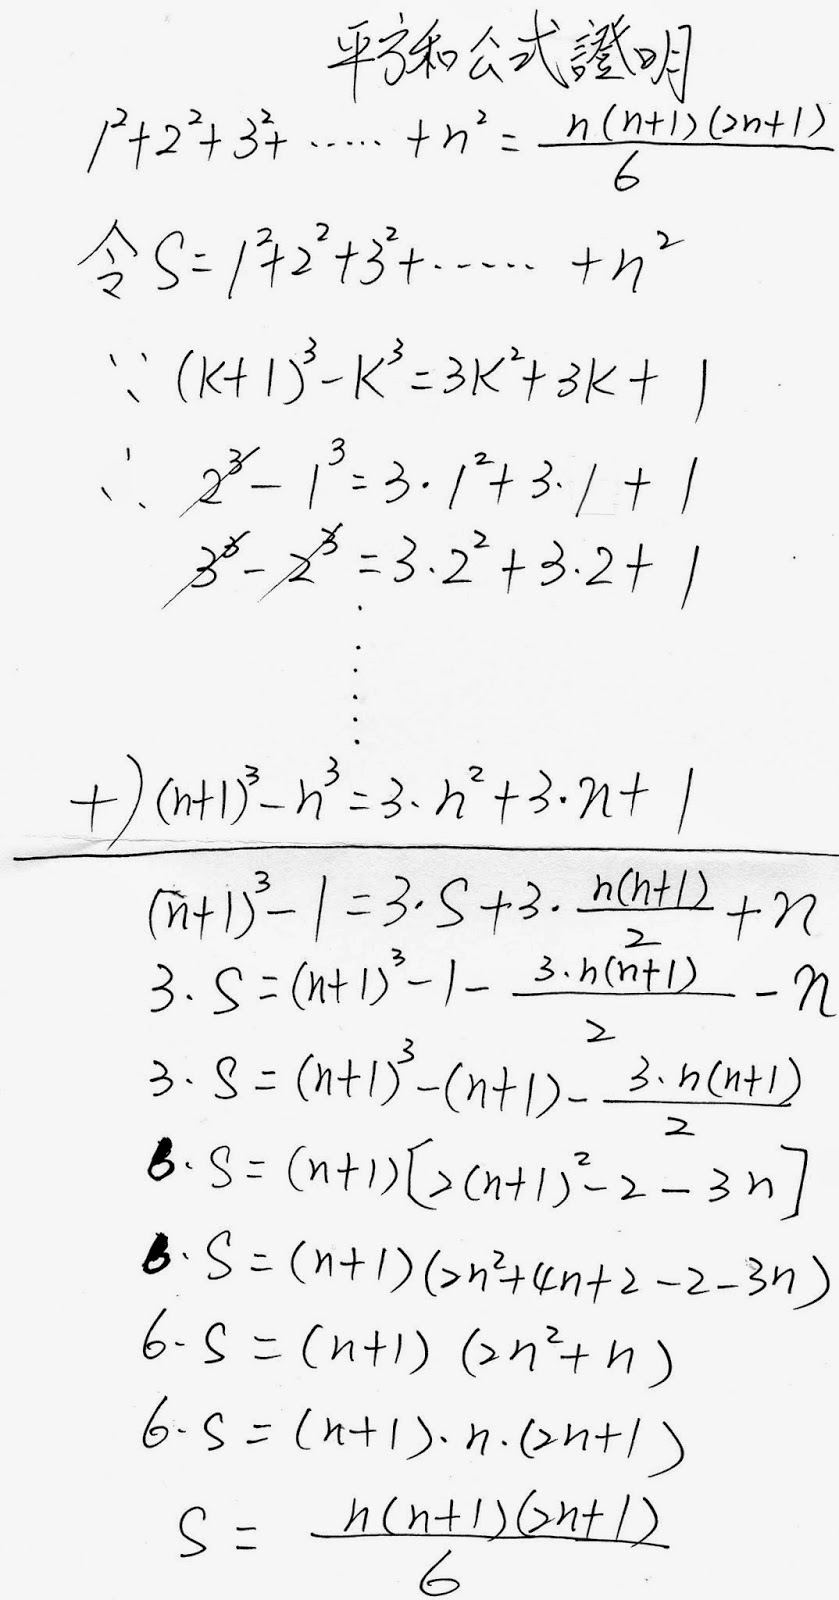 平方和公式證明
1²+2²+3²+ ····· +n² = n(n+1)(2n+1)/6
令 S=1²+2²+3²+ ······ +n²
∵ (k+1)³-k³=3k²+3k+1
∴ 2³-1³=3·1²+3·1+1
3³-2³=3·2²+3·2+1
⋮
+) (n+1)³-n³=3·n²+3·n+1
(n+1)³-1=3·S+3·n(n+1)/2+n
3·S=(n+1)³-1-3·n(n+1)/2-n
3·S=(n+1)³-(n+1)-3·n(n+1)/2
6·S=(n+1)[2(n+1)²-2-3n]
6·S=(n+1)(2n²+4n+2-2-3n)
6·S=(n+1)(2n²+n)
6·S=(n+1)·n·(2n+1)
S=n(n+1)(2n+1)/6